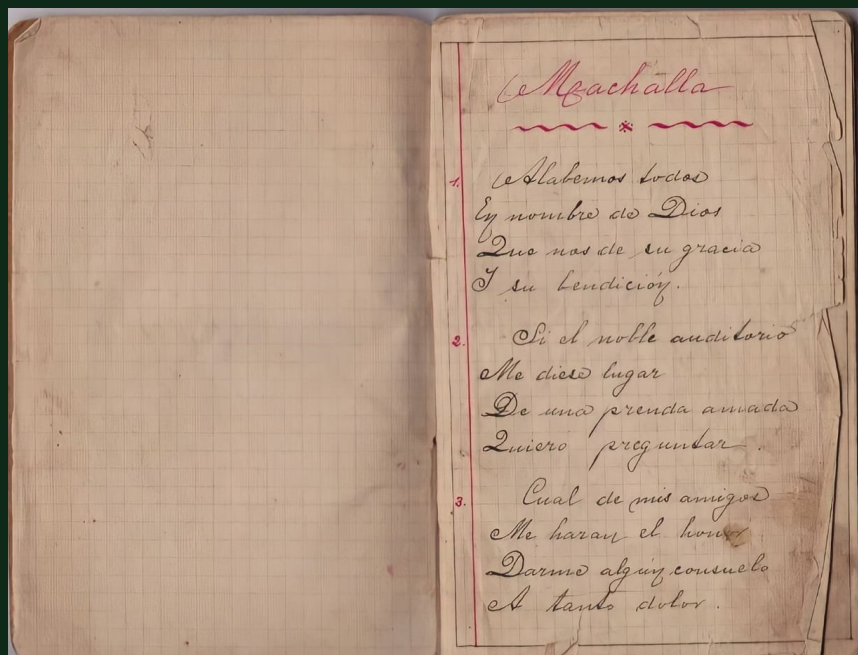 Machalla
1.
Alabemos todos
En nombre de Dios
Que nos de su gracia
I su bendición.
2.
Si el noble auditorio
Me diese lugar
De una prenda amada
Quiero preguntar.
3.
Cual de mis amigos
Me haran el honor
Darme algún consuelo
A tanto dolor.